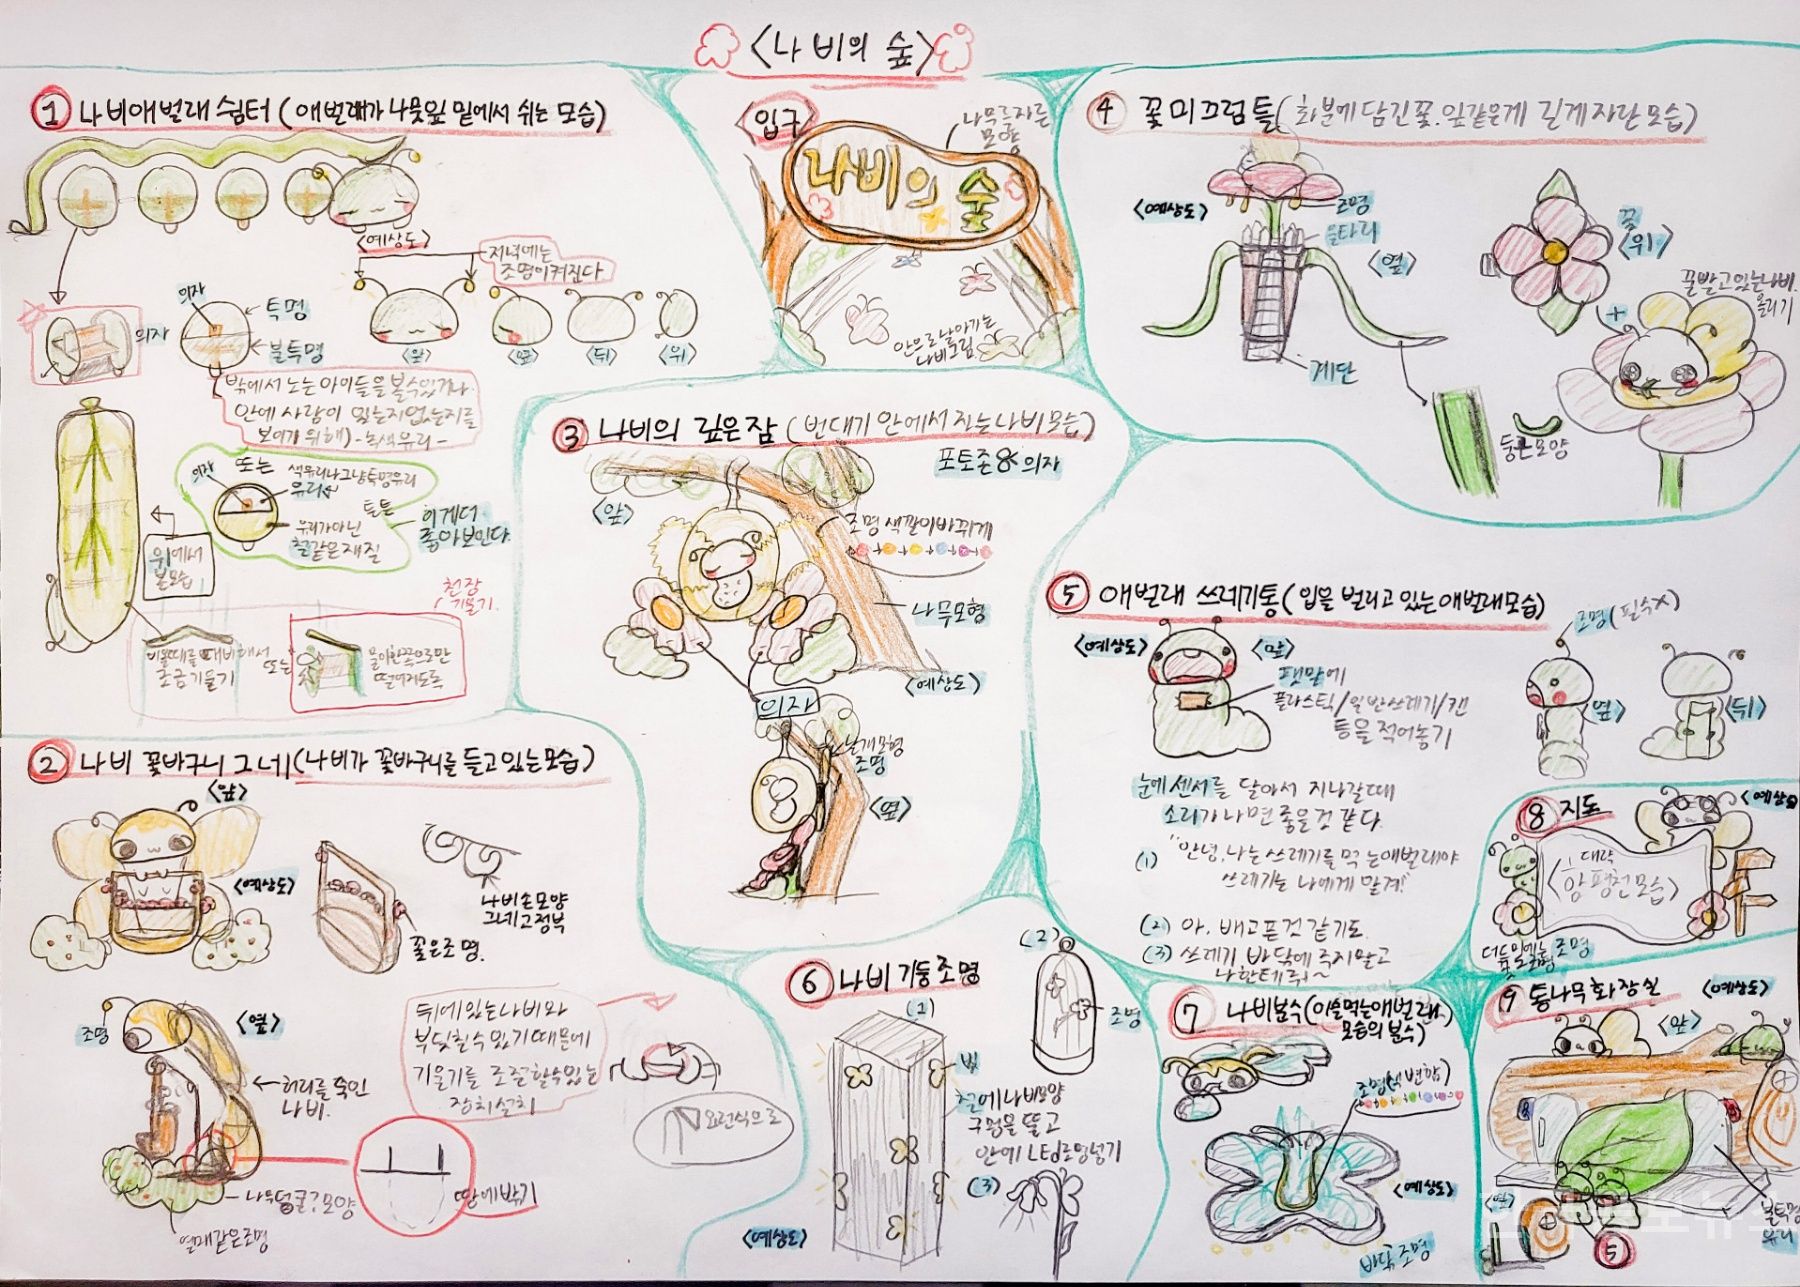 <나비의 숲>
① 나비애벌래 쉼터 (애벌래가 나뭇잎 밑에서 쉬는 모습)
<예상도>
저녁에는
조명이켜진다
의자
의자
투명
불투명
<앞>
<옆>
<뒤>
<위>
밖에서 노는 아이들을 볼수있거나
안에 사람이 있는지없는지를
보이기 위해) - 녹색유리 -
의자
또는
색유리나그냥투명유리
유리
튼튼
유리가아닌
철같은재질
이게더
좋아보인다
위에서
본모습
천장
기울기
비올때를 대비해서
조금기울기
또는
물이한쪽으로만
떨어지도록
② 나비 꽃바구니 그네 (나비가 꽃바구니를 들고있는모습)
<앞>
<예상도>
나비손모양
그네고정부
꽃은조명.
조명
<옆>
허리를 숙인
나비.
뒤에있는나비와
부딪칠수있기때문에
기울기를 조절할수있는
장치설치
요런식으로
나무덩쿨?모양
땅에박기
열매같은조명
<입구>
나무를자른
모양
나비의 숲
안으로날아가는
나비그림
③ 나비의 깊은잠 (번대기 안에서 자는나비모습)
포토존&의자
<앞>
조명색깔이바뀌게
나무모형
의자
<예상도>
날개모형
조명
<옆>
④ 꽃미끄럼틀 (화분에 담긴꽃. 잎같은게 길게자란모습)
<예상도>
조명
울타리
<옆>
계단
꽃
<위>
꿀빨고있는나비.
올리기
둥근모양
⑤ 애벌래 쓰레기통 (입을 벌리고 있는 애벌래모습)
<예상도>
<앞>
팻말에
플라스틱/일반쓰레기/캔
등을 적어놓기
조명(필수X)
<옆>
<뒤>
눈에 센서를 달아서 지나갈때
소리가나면 좋을것 같다.
(1) "안녕, 나는 쓰레기를 먹는애벌래야
쓰레기는 나에게 맡겨!"
(2) 아, 배고픈것 같기도.
(3) 쓰레기 바닥에 주지말고
나한테 줘~
⑥ 나비 기둥조명
(1)
(2)
조명
빛
천에나비모양
구멍을 뚫고
안에 LEd조명넣기
(3)
<예상도>
⑦ 나비분수(이슬먹는애벌래
모습의 분수)
조명(색변함)
<예상도>
바닥조명
⑧ 지도
<예상도>
대략
<함평천모습>
조명
⑨ 통나무화장실
<예상도>
<앞>
<옆>
불투명
유리
⑤